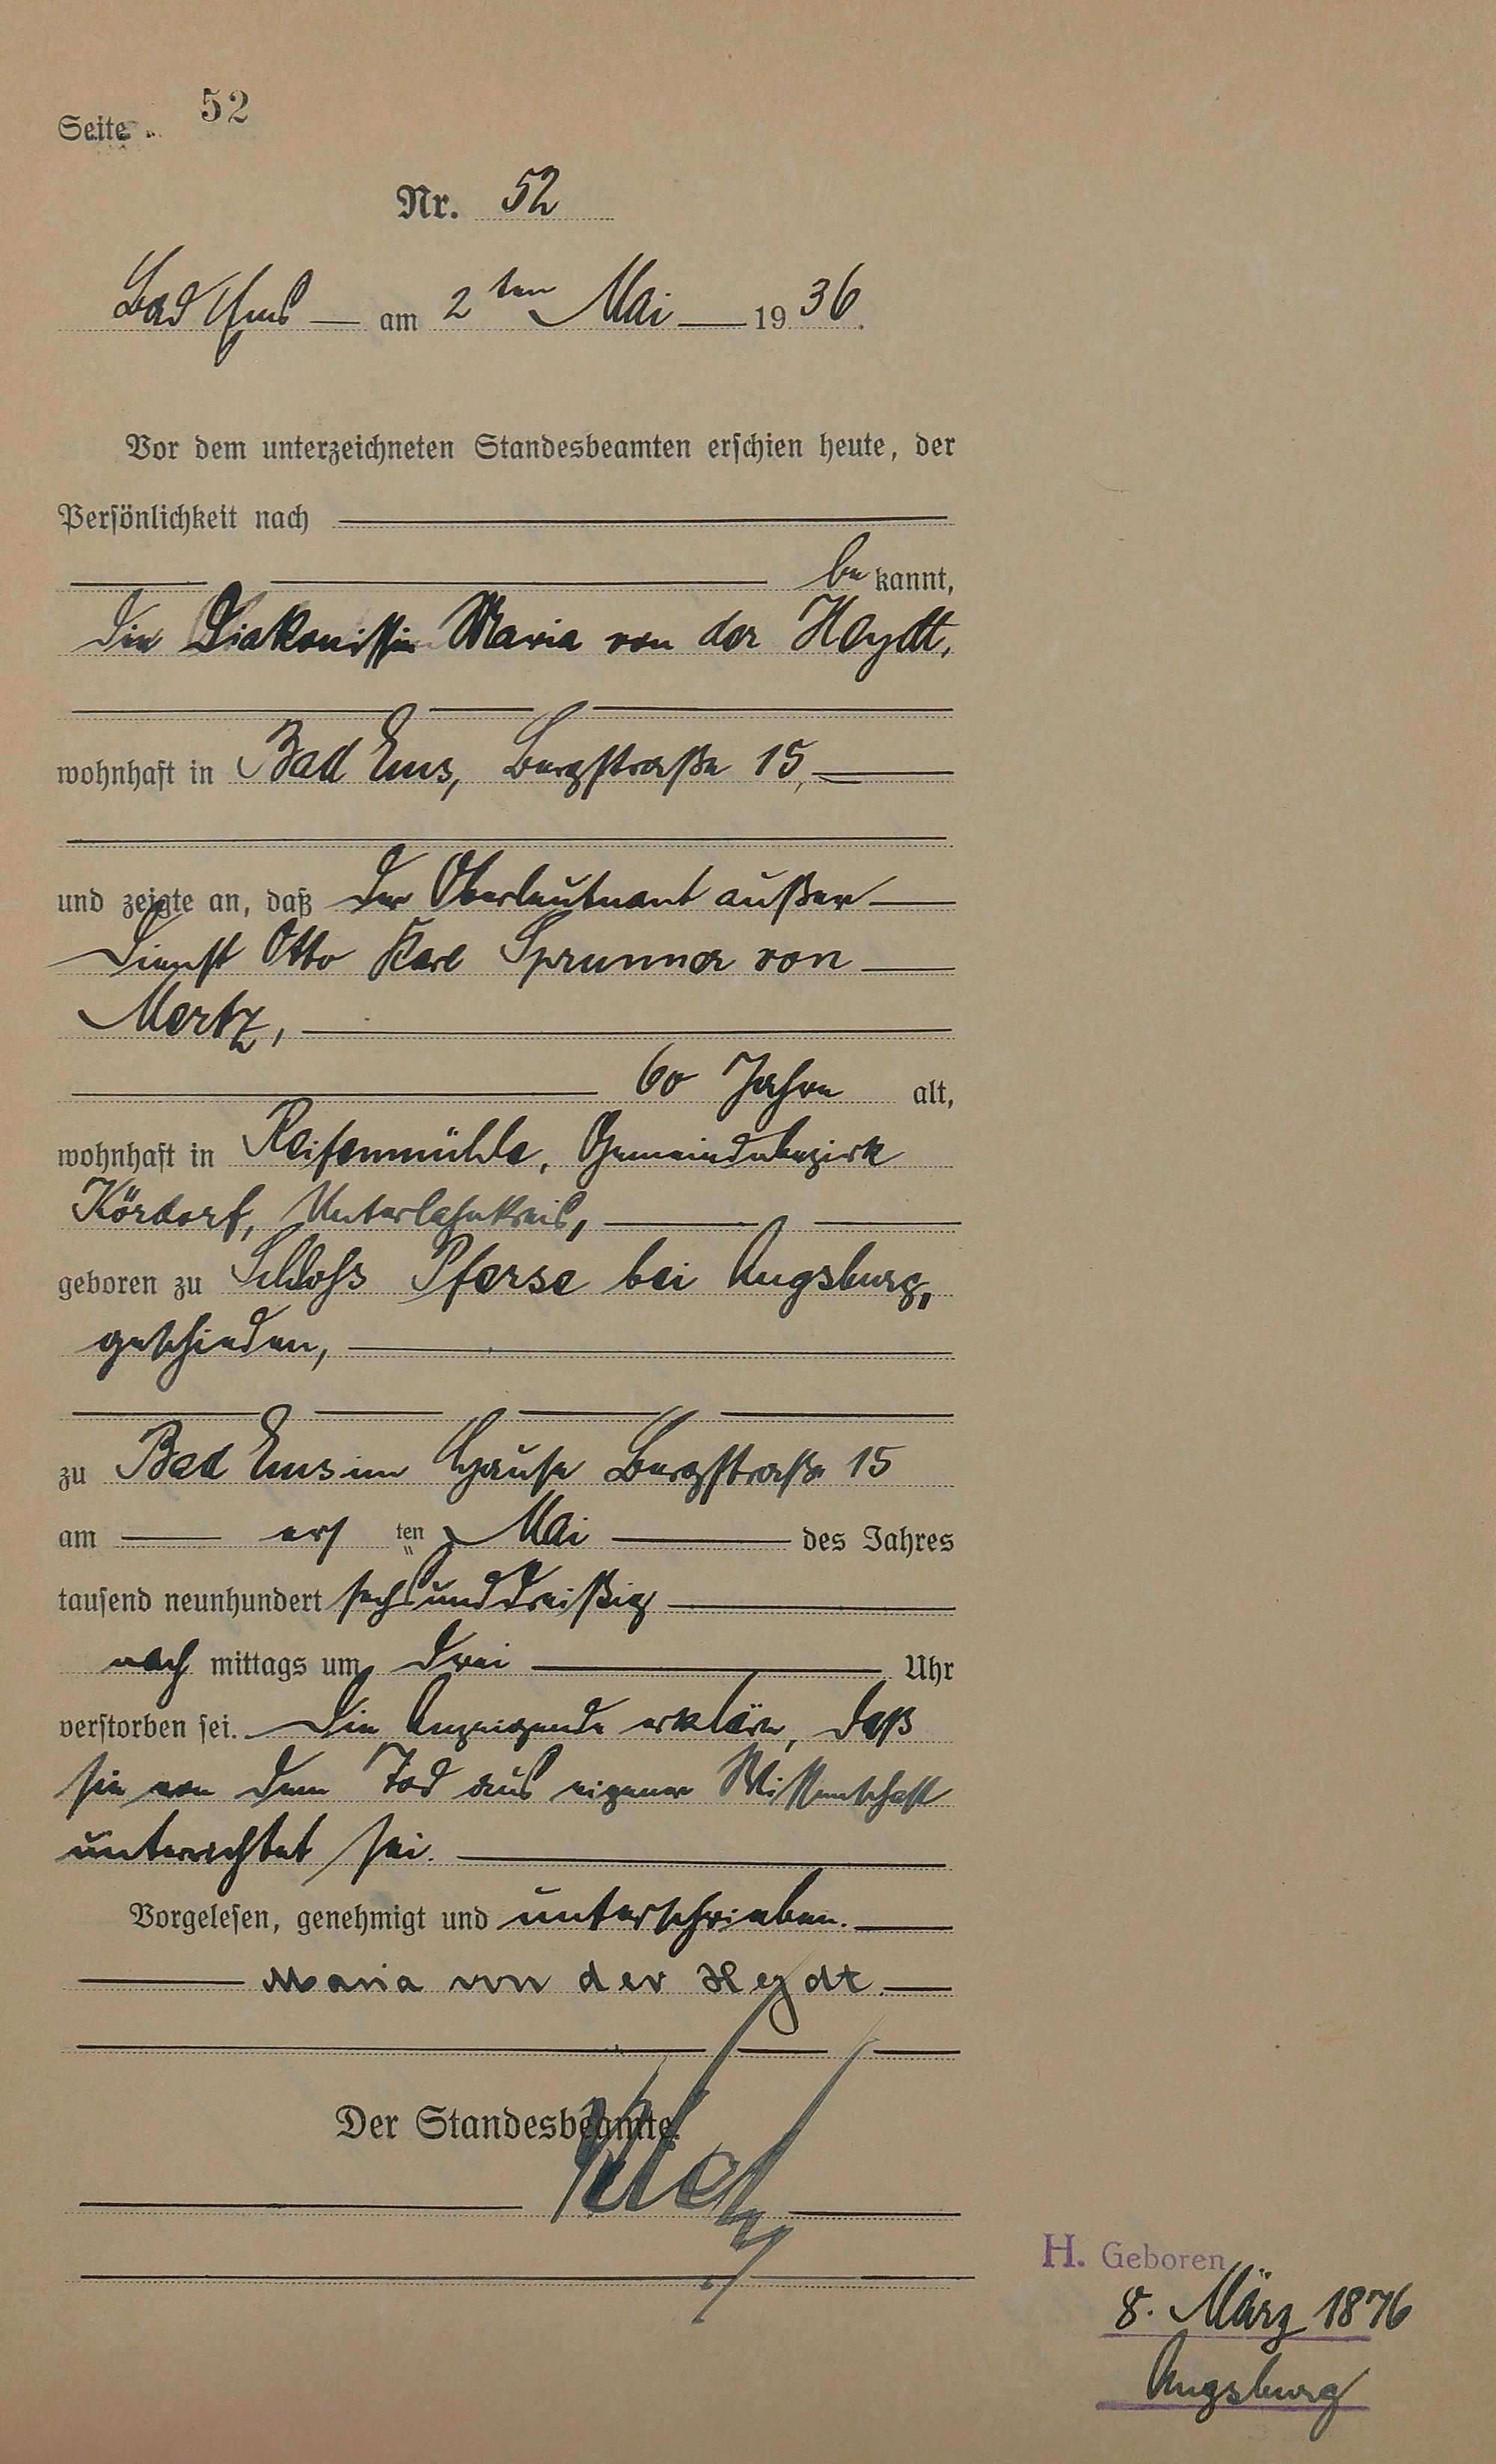 Seite 52
Nr. 52
Bad Ems am 2ten Mai 1936.
Vor dem unterzeichneten Standesbeamten erschien heute, der
Persönlichkeit nach
be kannt,
die Diakonissin Maria von der Heydt,
wohnhaft in Bad Ems, Bergstraße 15,
und zeigte an, daß der Oberleutnant außer
Dienst Otto Karl Sprunner von
Mertz,
60 Jahre alt,
wohnhaft in Reifenmühle, Gemeindebezirk
Kördorf, Unterlahnkreis,
geboren zu Schloss Pferse bei Augsburg,
geschieden,
zu Bad Ems im Hause Bergstraße 15
am ersten Mai des Jahres
tausend neunhundert sechsunddreißig
nach mittags um drei Uhr
verstorben sei. Die Anzeigende erkläre, daß
sie von dem Tod aus eigener Wissenschaft
unterrichtet sei.
Vorgelesen, genehmigt und unterschrieben.
Maria von der Heydt.
Der Standesbeamte.
H. Geboren
8. März 1876
Augsburg